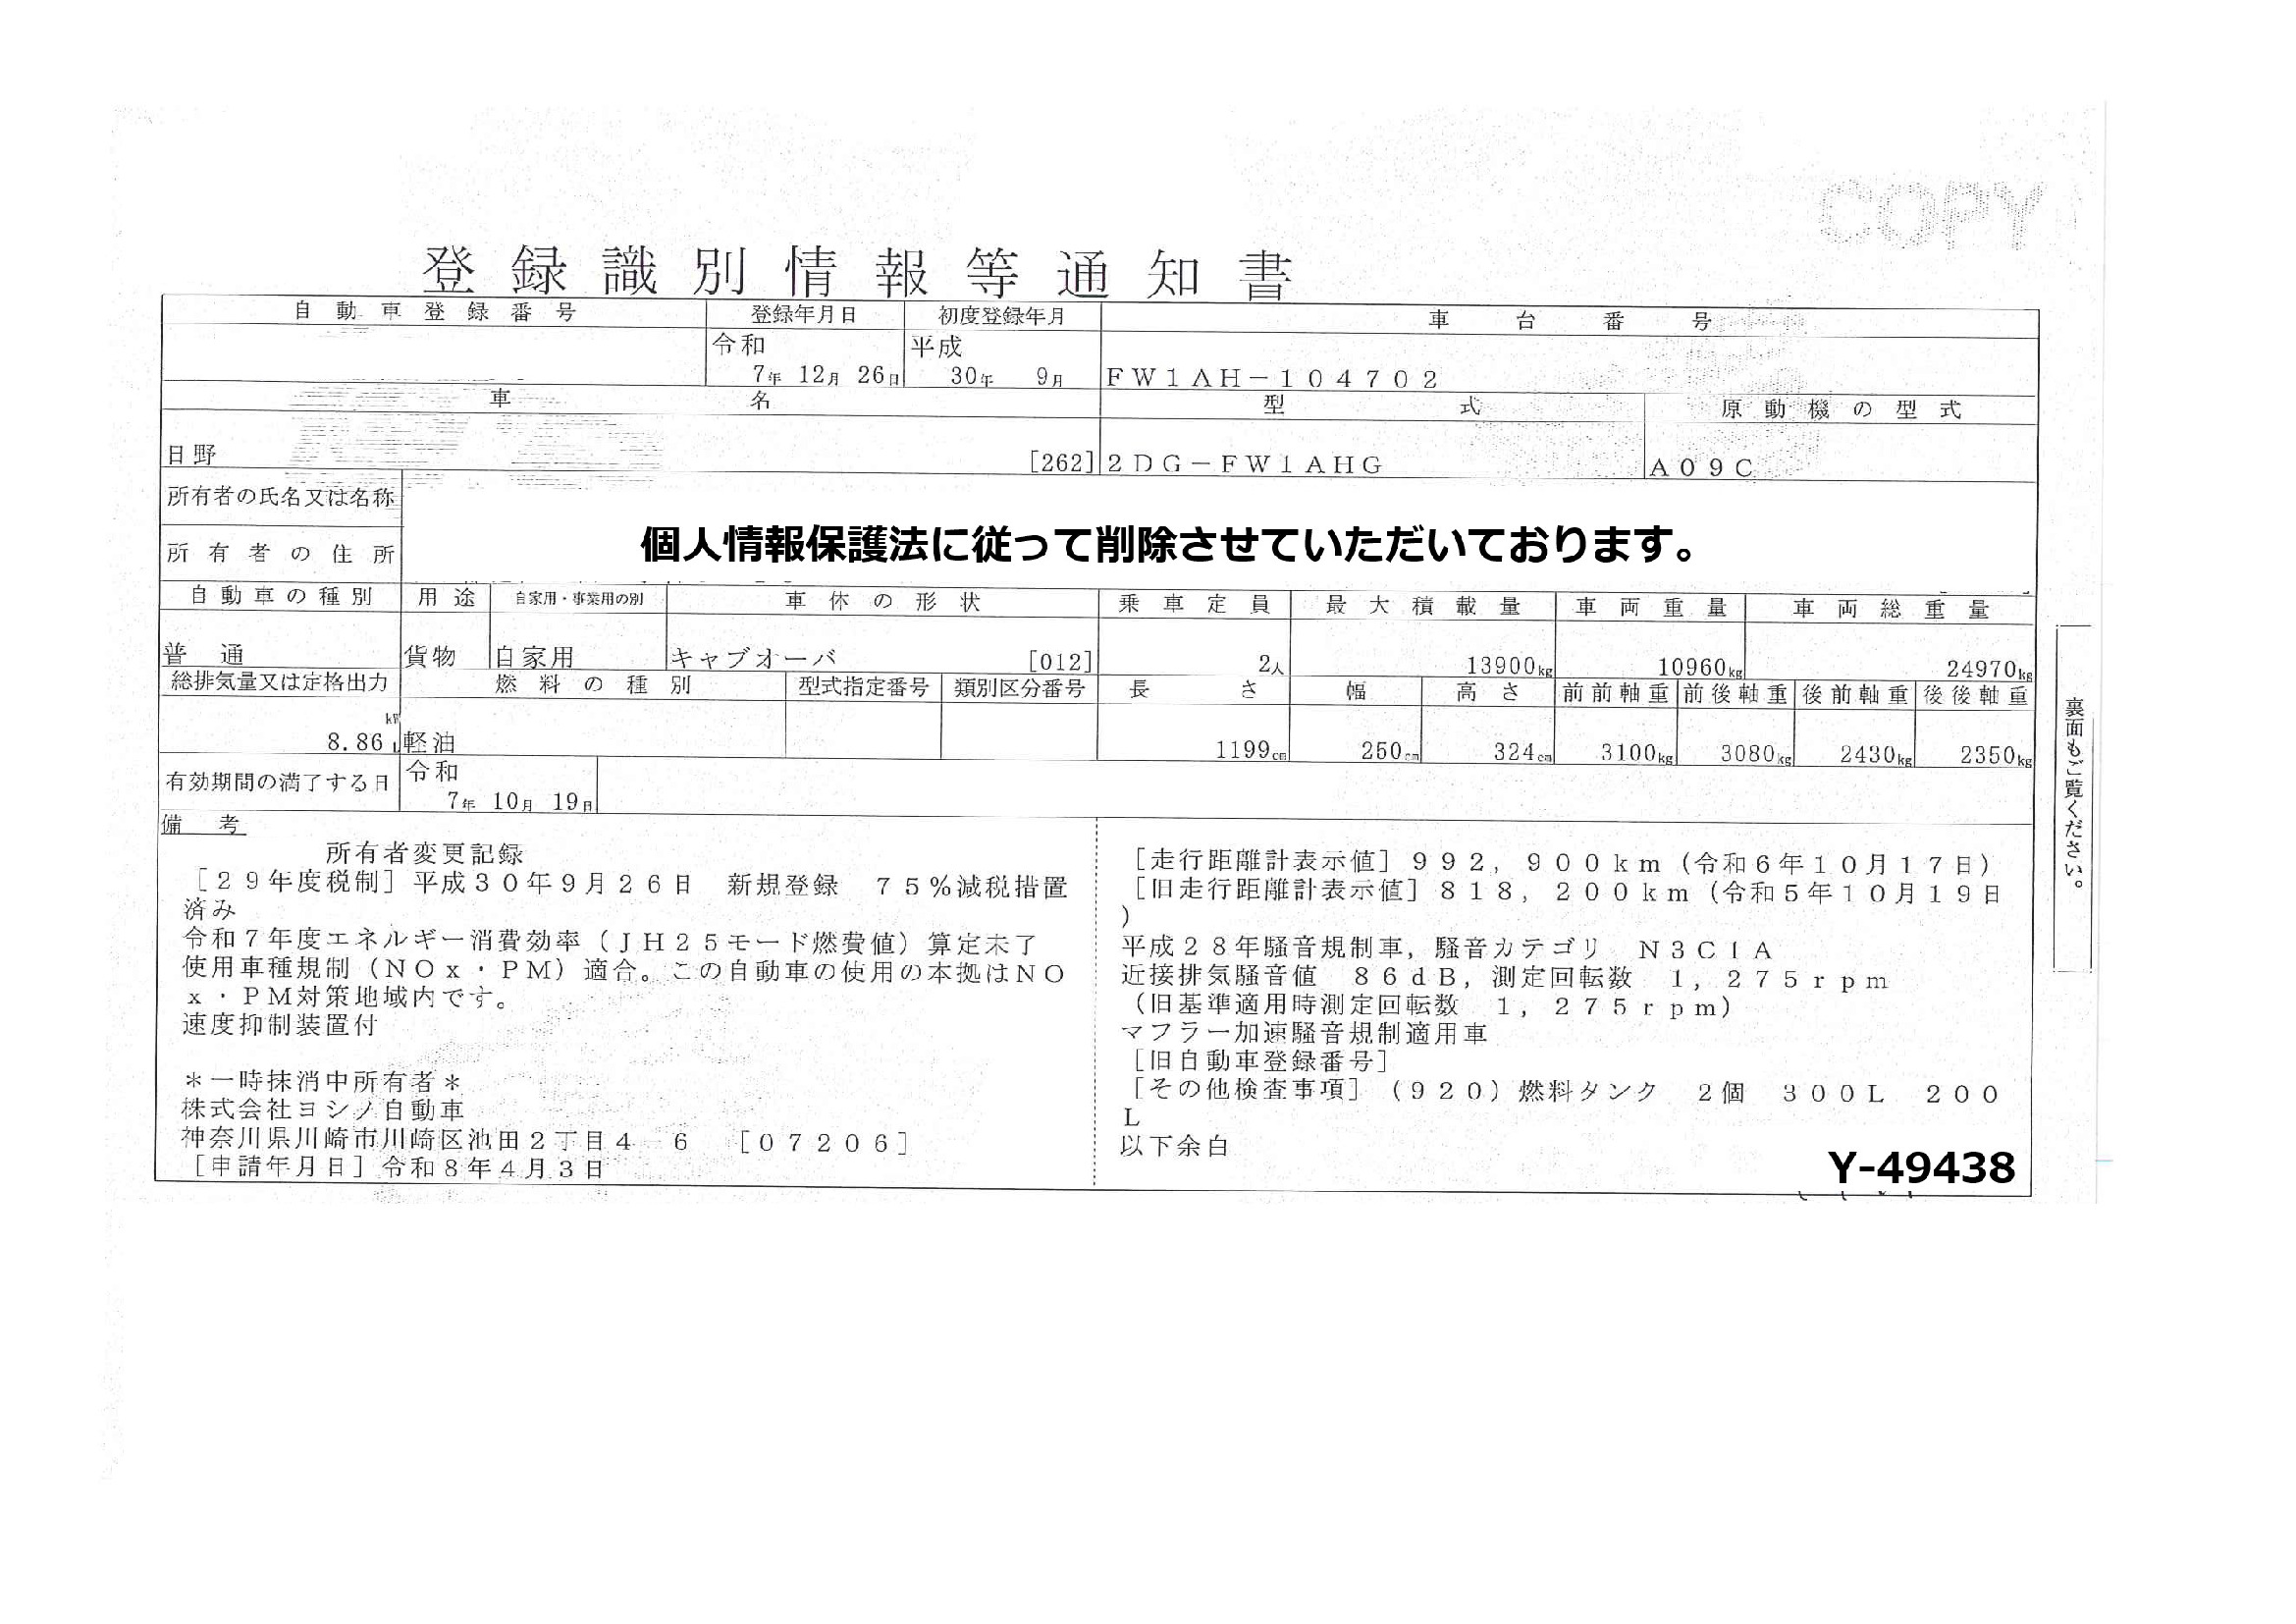 COPY
登録識別情報等通知書
自動車登録番号 登録年月日 初度登録年月 車台番号
令和 平成
7年 12月 26日 30年 9月 FW1AH-104702
車名 型式 原動機の型式
日野 [262] 2DG-FW1AHG A09C
所有者の氏名又は名称
個人情報保護法に従って削除させていただいております。
所有者の住所
自動車の種別 用途 自家用・事業用の別 車体の形状 乗車定員 最大積載量 車両重量 車両総重量
普通 貨物 自家用 キャブオーバ [012] 2人 13900kg 10960kg 24970kg
総排気量又は定格出力 燃料の種別 型式指定番号 類別区分番号 長さ 幅 高さ 前前軸重 前後軸重 後前軸重 後後軸重
kW
8.86 L 軽油 1199cm 250cm 324cm 3100kg 3080kg 2430kg 2350kg
有効期間の満了する日 令和
7年 10月 19日
備考
所有者変更記録
[29年度税制]平成30年9月26日 新規登録 75%減税措置
済み
令和7年度エネルギー消費効率(JH25モード燃費値)算定未了
使用車種規制(NOx・PM)適合。この自動車の使用の本拠はNO
x・PM対策地域内です。
速度抑制装置付
*一時抹消中所有者*
株式会社ヨシノ自動車
神奈川県川崎市川崎区池田2丁目4-6 [07206]
[申請年月日]令和8年4月3日
[走行距離計表示値]992,900km(令和6年10月17日)
[旧走行距離計表示値]818,200km(令和5年10月19日
)
平成28年騒音規制車,騒音カテゴリ N3C1A
近接排気騒音値 86dB,測定回転数 1,275rpm
(旧基準適用時測定回転数 1,275rpm)
マフラー加速騒音規制適用車
[旧自動車登録番号]
[その他検査事項](920)燃料タンク 2個 300L 200
L
以下余白
Y-49438
裏面もご覧ください。